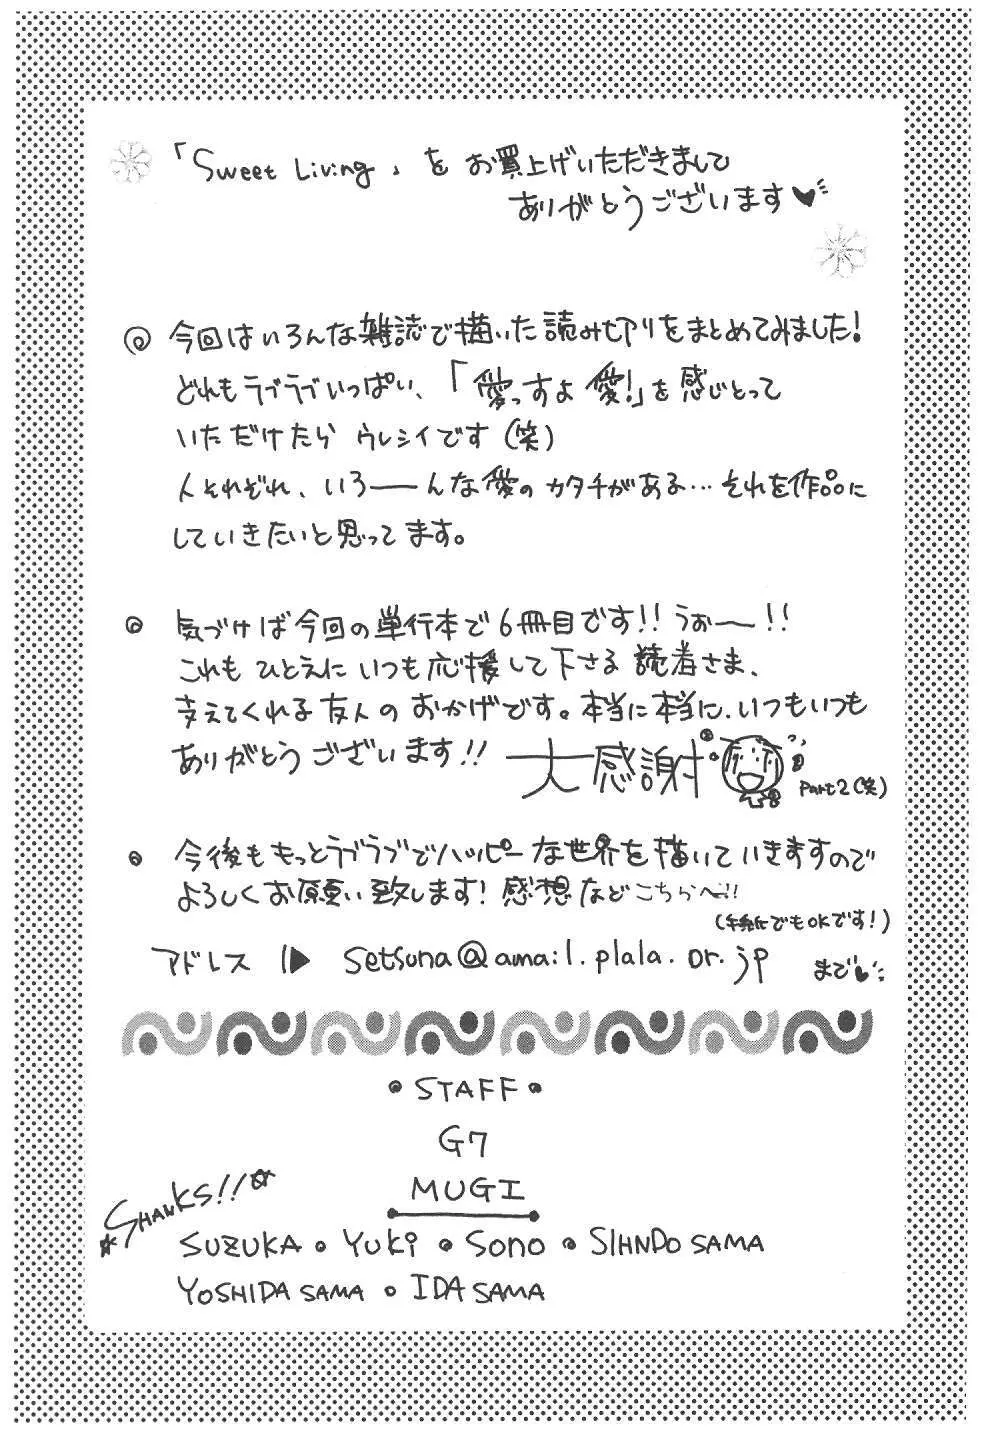 「Sweet Living」を お買上げいただきまして
ありがとうございます♥
◎ 今回はいろんな雑誌で描いた読み切りをまとめてみました!
どれもラブラブいっぱい、「愛っすよ 愛!」を感じとって
いただけたら ウレシイです(笑)
人それぞれ、いろ――んな愛の カタチがある…それを作品に
していきたいと思ってます。
◎ 気づけば今回の単行本で6冊目です!!うぉ―!!
これも ひとえに いつも応援して下さる 読者さま、
支えてくれる友人の おかげです。本当に本当に、いつもいつも
ありがとうございます!! 大感謝
Part2(笑)
◎ 今後も もっとラブラブでハッピーな世界を描いていきますので
よろしくお願い致します! 感想など こちらへ!!
(手紙でもOKです!)
アドレス ▶ setsuna@amail.plala.or.jp まで♥
• STAFF •
G7
MUGI
☆SHANKS!!☆
SUZUKA • YUKi • SONO • SIHNDO SAMA
YOSHIDA SAMA • IDA SAMA